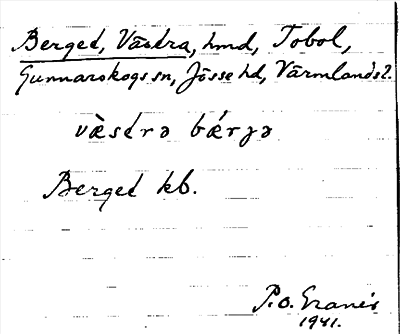 Berget, Västra, hmd, Tobol,
Gunnarskogs sn, Jösse hd, Värmlands l.
væ̀stra bǽrjə
Berget kb.
P. O.
1941.